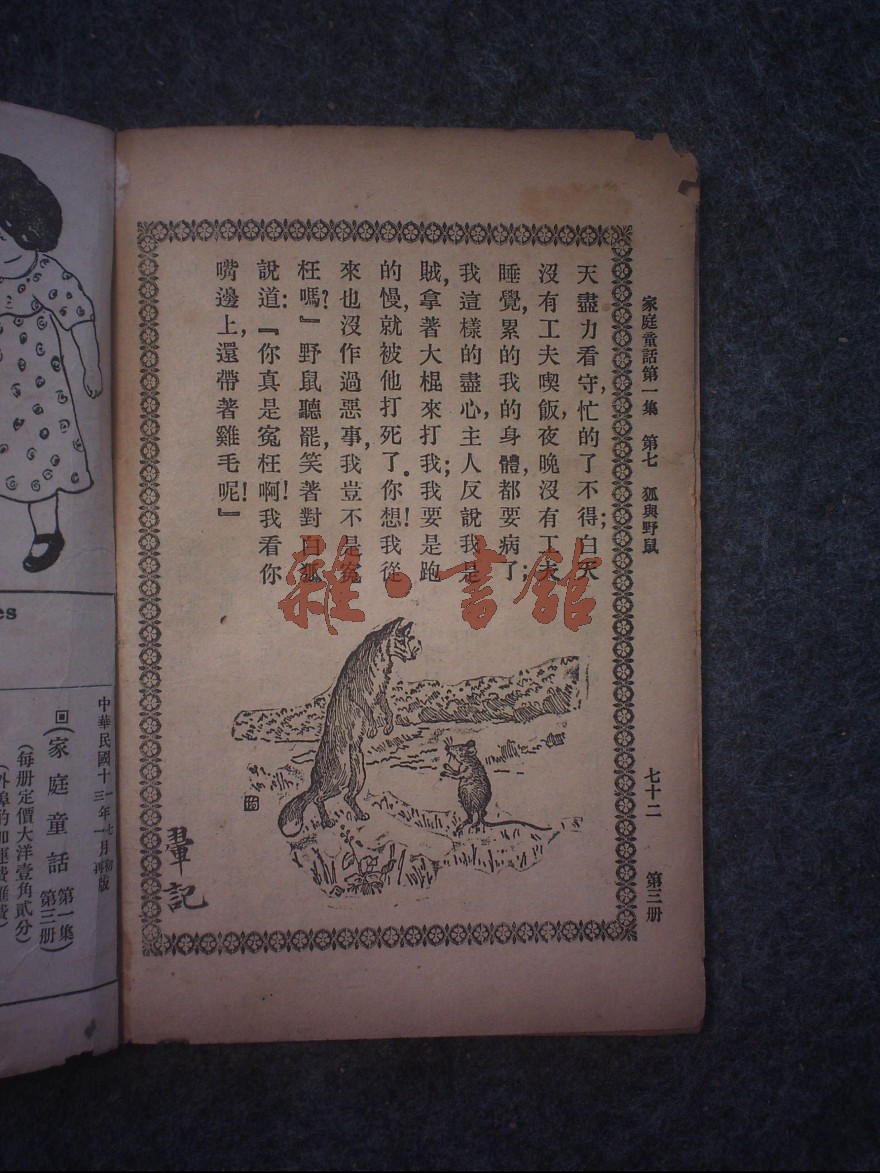 家庭童話第一集 第七 狐與野鼠 七十二 第三册
天盡力看守,忙的了不得;白天
沒有工夫喫飯,夜晚沒有工夫
睡覺,累的我的身體,都要病了;
我這樣的盡心,主人反說我是
賊,拿著大棍來打我;我要是跑
的慢,就被他打死了。你想!我從
來也沒作過惡事,我豈不是冤
枉嗎?』野鼠聽罷,笑著對白狐
說道:『你真是冤枉啊!我看你
嘴邊上,還帶著雞毛呢!』
雜·書館
翬記
es
中華民國十一年七月初版
十三年一月再版
回(家庭童話 第一集 第三册)
(每册定價大洋壹角貳分)